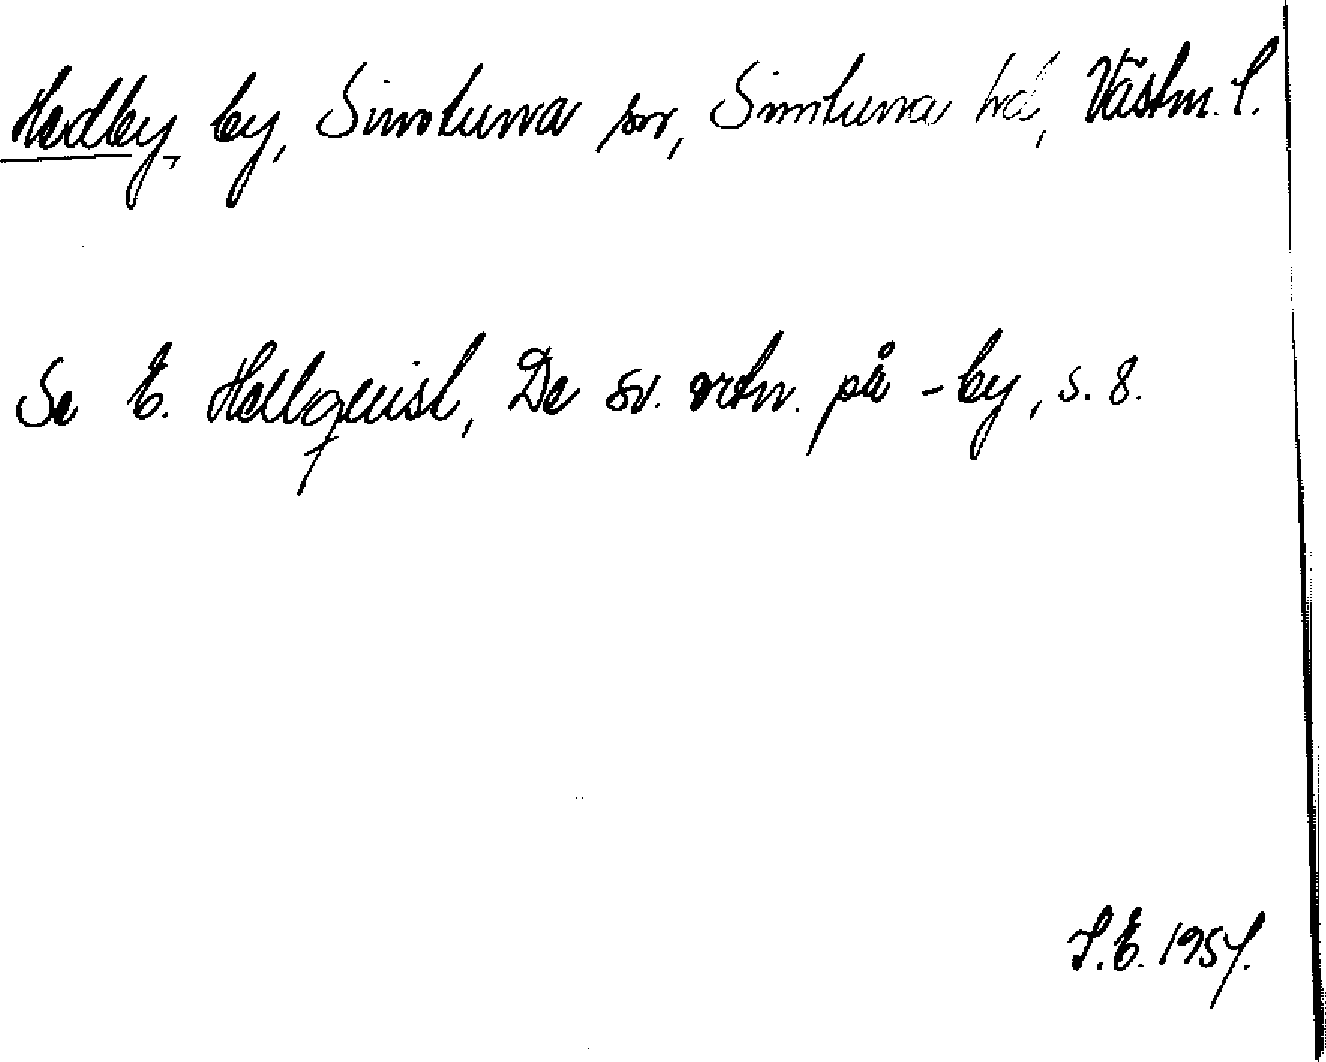 Hedby, by, Simtuna sn, Simtuna hd, Västm. l.
Se E. Hellquist, De sv. ortn. på -by, s. 8.
S.E. 1957.